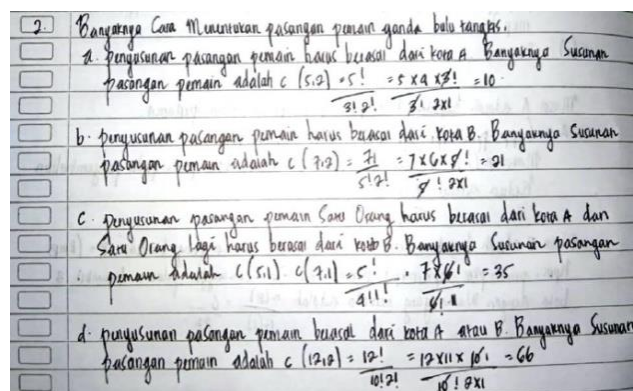 2. Banyaknya Cara Menentukan pasangan pemain ganda bulu tangkis.
a. penyusunan pasangan pemain harus berasal dari kota A. Banyaknya Susunan
pasangan pemain adalah C (5,2) = 5! / 3! 2! = 5 x 4 x 3! / 3! 2x1 = 10
b. penyusunan pasangan pemain harus berasal dari kota B. Banyaknya Susunan
pasangan pemain adalah C (7,2) = 7! / 5! 2! = 7x6x5! / 5! 2x1 = 21
C. penyusunan pasangan pemain Satu Orang harus berasal dari kota A dan
Satu Orang Lagi harus berasal dari kota B. Banyaknya Susunan pasangan
pemain adalah C(5,1) . C(7,1) = 5! / 4! 1! . 7x6! / 6! 1 = 35
d. penyusunan pasangan pemain berasal dari kota A atau B. Banyaknya Susunan
pasangan pemain adalah C (12,2) = 12! / 10! 2! = 12x11x10! / 10! 2x1 = 66